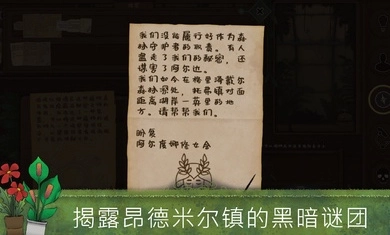 我们没能履行好作为森
林守护者的职责。有人
盗走了我们的秘密，还
谋害了阿尔迦。
我们如今在格里海戴尔
森林深处，托弗镇对面
距离湖岸一英里的地
方。请帮帮我们。
卧蚕
阿尔度娜修女会
揭露昂德米尔镇的黑暗谜团